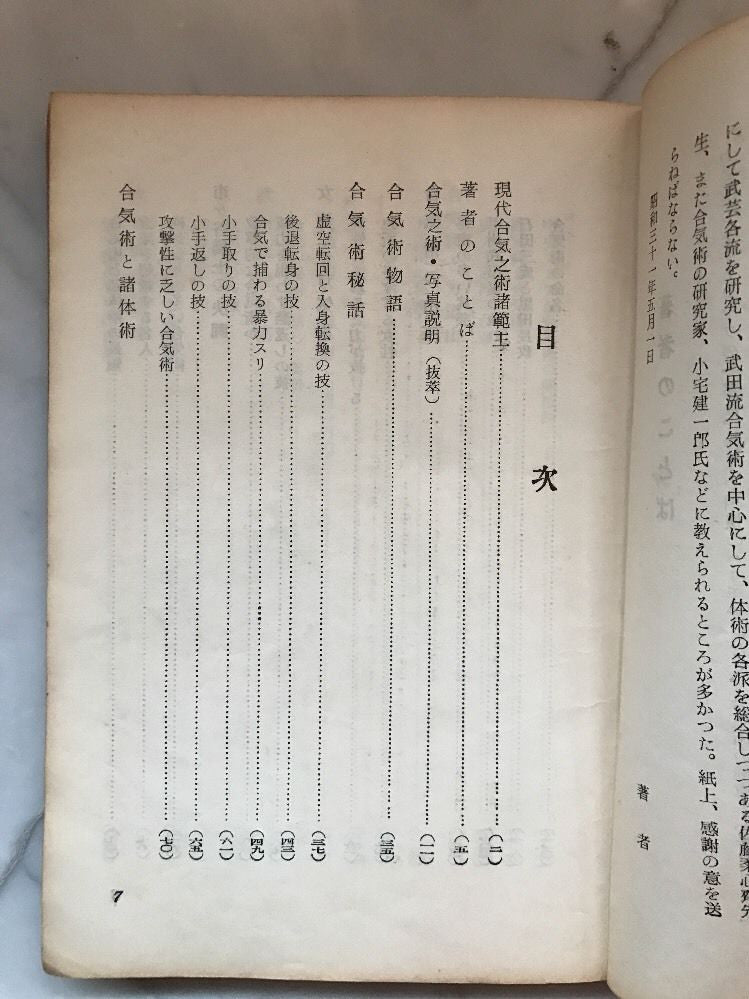 にして武芸各流を研究し、武田流合気術を中心にして、体術の各派を総合しつつある佐藤柔心斎先
生、また合気術の研究家、小宅建一郎氏などに教えられるところが多かつた。紙上、感謝の意を送
らねばならない。
昭和三十一年五月一日
著者
目次
現代合気之術諸範主……(二)
著者のことば……(五)
合気之術・写真説明(抜萃)……(一一)
合気術物語……(三五)
合気術秘話
虚空転回と入身転換の技……(三七)
後退転身の技……(四三)
合気で捕わる暴力スリ……(四九)
小手取りの技……(六一)
小手返しの技……(六五)
攻撃性に乏しい合気術……(七〇)
合気術と諸体術
7